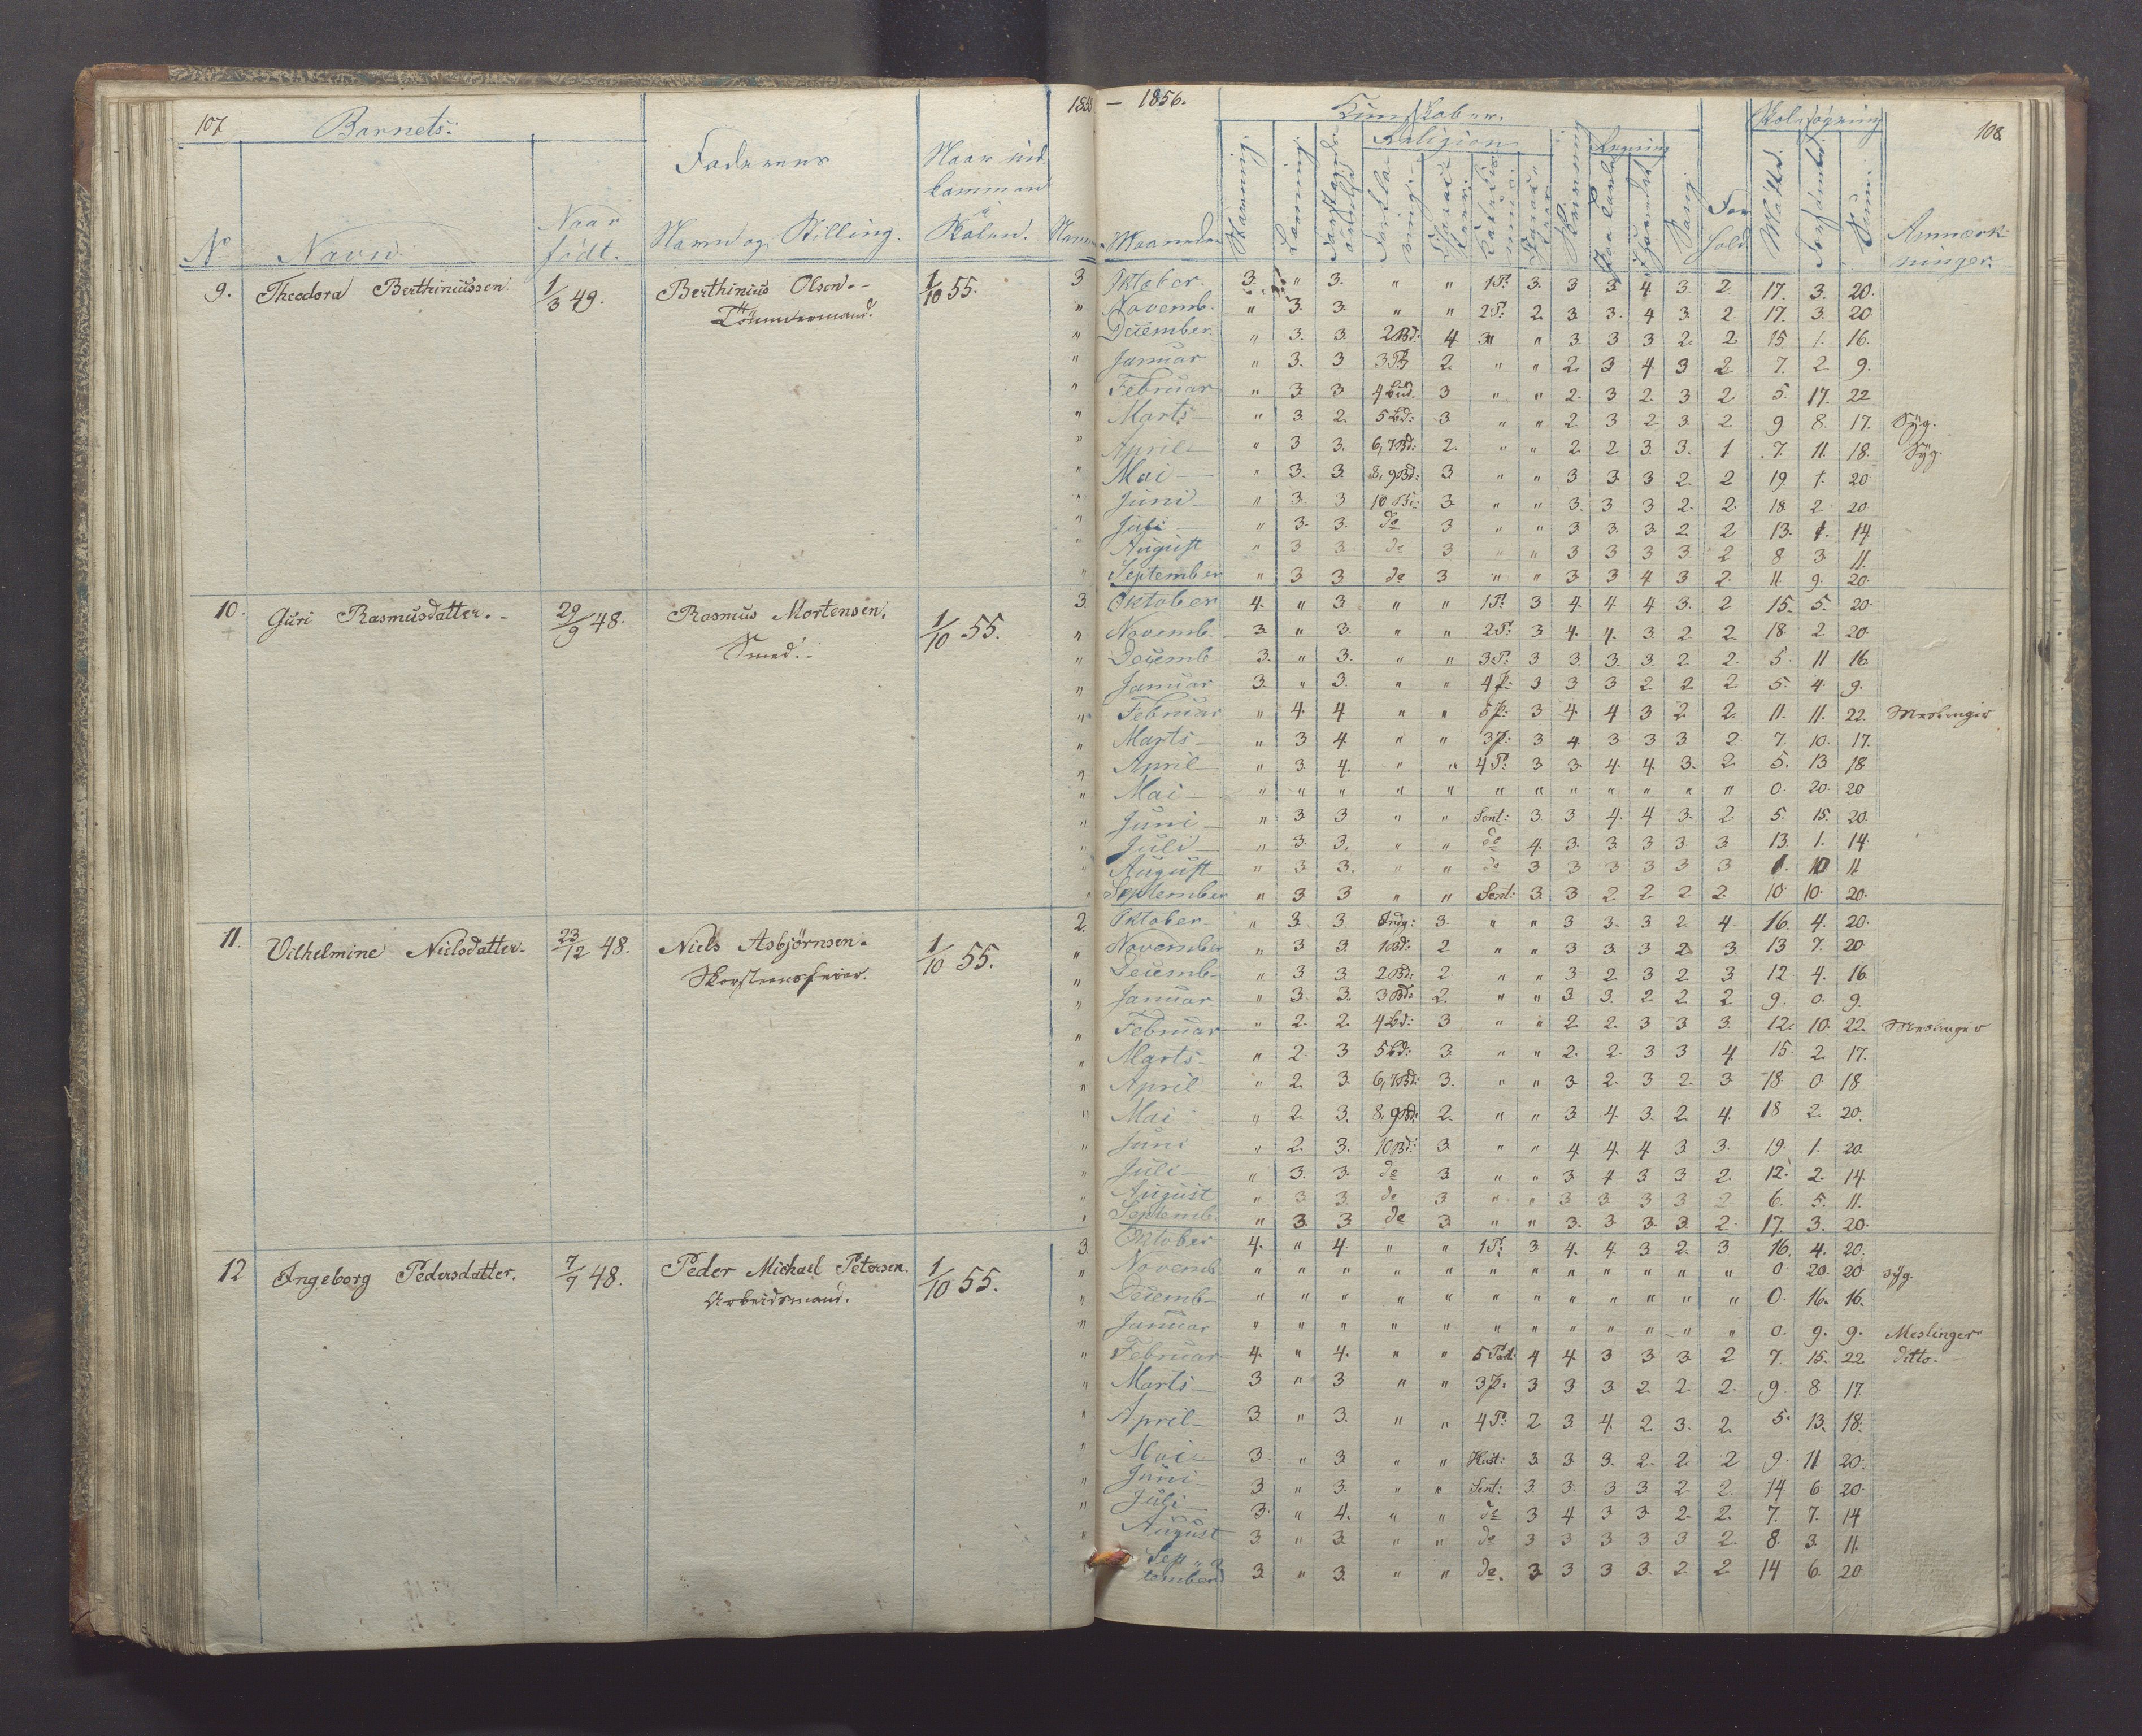 107
Barnets:
1855 — 1856.
Kundskaber.
Skolesøgning
108
Faderens
Naar ind
kommen
i
Skolen.
Religion
Regning
Stavning
Læsning
Sang
Skrivning
Forsømte
Sum.
For
hold
Anmærk
ninger.
No
Navn
Naar
født.
Navn og Stilling.
Maaneder
9. Theodora Berthiniussen. 1/3 49. Berthinius Olsen. 1/10 55.
Tømmermand.
3 Oktober. 3. " 3. " " 1P. 3. 3 3 4. 3. 2. 17. 3. 20.
" Novemb. " 3. 3. " " 2P. 2. 3 3. 4 3. 2. 17. 3. 20
" December " 3. 3. 2Bd: 4 " " 3. 3 3 2. 2. 15 1. 16.
" Januar " 3. 3 2. " " 2. 3 4. 3 2 7. 2. 9.
" Februar " 3 3 3 " " 2. 3 2. 3 2. 5. 17. 22
" Marts " 3 2. 5Bd: 3 " " 2 3 2 3. 2 9 8. 17. Syg.
" April " 3 3. 6,7Bd: 2. " " 2. 2 3. 3. 1 7. 11. 18. Syg.
" Mai " 3. 3. 8,9Bd: 3 " " 3 3. 3 2. 2 19 1. 20
" Juni " 3. 3 10Bd: 3 " " 3. 3 3 2. 2. 18. 2. 20
" Juli " 3. 3. do 3 " " 3 3. 3. 2 2 13. 1. 14
" August " 3 3 do 3 " " 3 3 3 3. 2 8 3 11.
" September " 3 3 do 3 " " 3 3 4 3 2. 11. 9. 20.
10. Guri Rasmusdatter. 29/9 48. Rasmus Mortensen. 1/10 55.
Smed.
3. Oktober 4. " 3. " " 1P. 3 4. 4 4 3. 2 15. 5. 20
" Novemb. 3. " 3. " " 2P. 3 4. 4. 3. 2 2. 18. 2 20
" Decemb 3. " 3. " " 3P: 3 3. 3. 3. 2 2. 5. 11 16
" Januar 3. " 3. " " 4P: 3 3 3 2. 2. 2. 5. 4. 9.
" Februar " 4. 4 " " 5P: 3 4. 4 3 2 2. 11. 11. 22. Meslinger
" Marts " 3 4 " " 3P: 3 4. 3 3 3 2 7. 10. 17.
" April " 3. 4. " " 4P: 3 3 4 4 3. 2 5. 13 18
" Mai " " " " " " " " " " " " 0. 20. 20
" Juni " 3 3 " " Sent: 3. 3 4. 4 3. 2 5. 15. 20.
" Juli " 3. 3. " " do 4. 3. 3 3 3. 3 13 1. 14.
" August " 3 3. " " do 3 3 3 3 3 3 1. 10 11
" September " 3 3 " " Sent: 3. 3 2 2 2 2. 10. 10. 20.
11. Vilhelmine Nielsdatter. 23/12 48. Niels Asbjørnsen. 1/10 55.
Skorsteensfeier.
2. Oktober " 3. 3. Indg: 3. " " 3 3. 3 2. 4. 16. 4. 20.
" November " 3 3. 1Bd: 2 " " 3 3 3 2. 3. 13 7. 20
" Decemb " 3 3. 2Bd: 2. " " 3 2 3 2. 3 12. 4. 16
" Januar " 3. 3. 3Bd: 2. " " 3 3. 2. 2 2 9. 0. 9.
" Februar " 2. 2. 4Bd: 3 " " 2 2. 3 3 3. 12. 10. 22 Meslinger
" Marts " 2. 3 5Bd: 3. " " 2. 2. 3 3 4 15. 2 17.
" April " 2. 3. 6,7Bd: 3. " " 3. 2. 3 2. 3 18. 0. 18
" Mai " 2. 3. 8,9Bd: 2. " " 3 4. 3. 2 4. 18 2. 20.
" Juni " 2. 3. 10Bd: 3 " " 4 4. 4 3 3. 19. 1. 20
" Juli " 3. 3. do 3 " " 3 4 3 3 2. 12. 2. 14.
" August " 3 3. do 3 " " 3 3 3 3 2 6. 5. 11.
" Septemb. " 3 3 do 3 " " 3. 3. 3. 3. 2. 17. 3. 20.
12 Ingeborg Pedersdatter. 7/7 48. Peder Michael Petersen. 1/10 55.
Arbeidsmand.
3. Oktober 4. " 4. " " 1P: 3. 4. 4. 3 2. 3. 16. 4. 20.
" Novemb " " " " " " " " " " " " 0. 20. 20 syg.
" Decemb " " " " " " " " " " " " 0. 16. 16.
" Januar " " " " " " " " " " " " 0. 9. 9. Meslinger
" Februar 4. " 4. " " 5 Part: 4 4. 3 3. 3. 2 7. 15. 22 ditto.
" Marts 3 " 3 " " 3P. 3 3 3 2. 2. 2. 9. 8 17.
" April 3. " 3. " " 4P: 2 3. 4. 2 3. 2. 5. 13. 18.
" Mai 3. " 3 " " 3. 3. 3. 2. 2. 2 9. 11 20.
" Juni 3 " 3. " " Sent: 3. 3. 3 3. 2 2. 14 6 20.
" Juli 3. " 4. " " do 3 4 3 3. 2. 2. 7. 7. 14
" August 3 " 3. " " do 3 3 3 3 3 2. 8. 3. 11.
Sep
tember 3 " 3. " " do. 3. 3 3 3. 2. 2 14 6 20